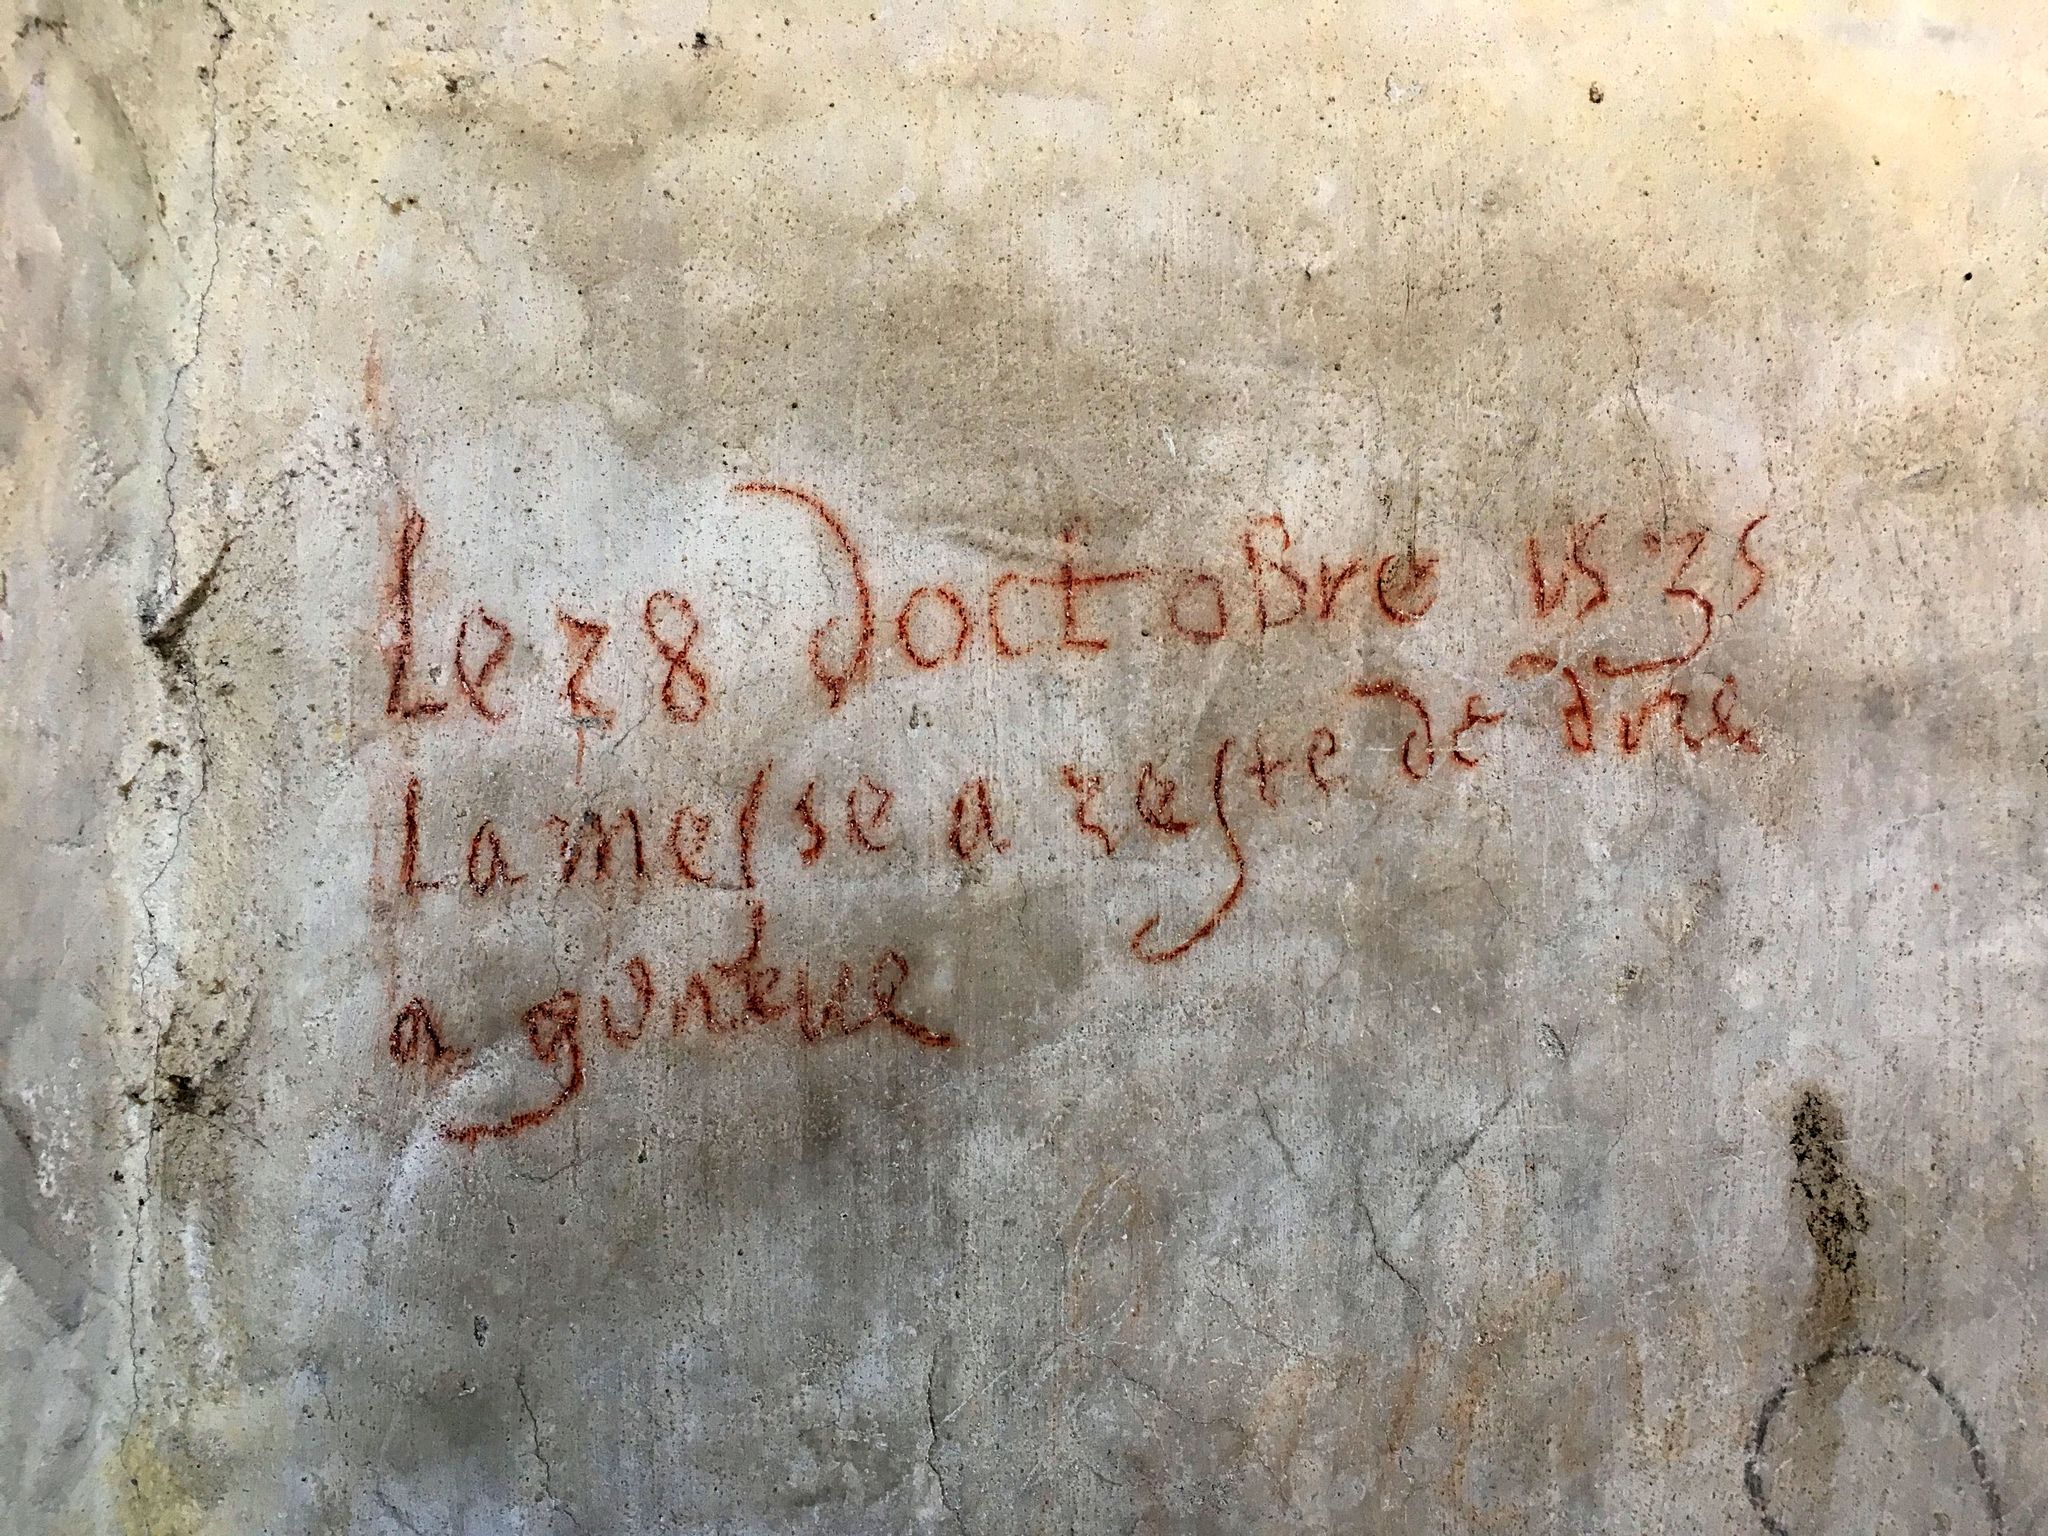 Le 28 doctobre 1535
La messe a reste de dire
a gunteue